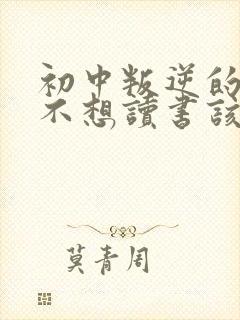 初中叛逆的
不想讀書該
莫青周